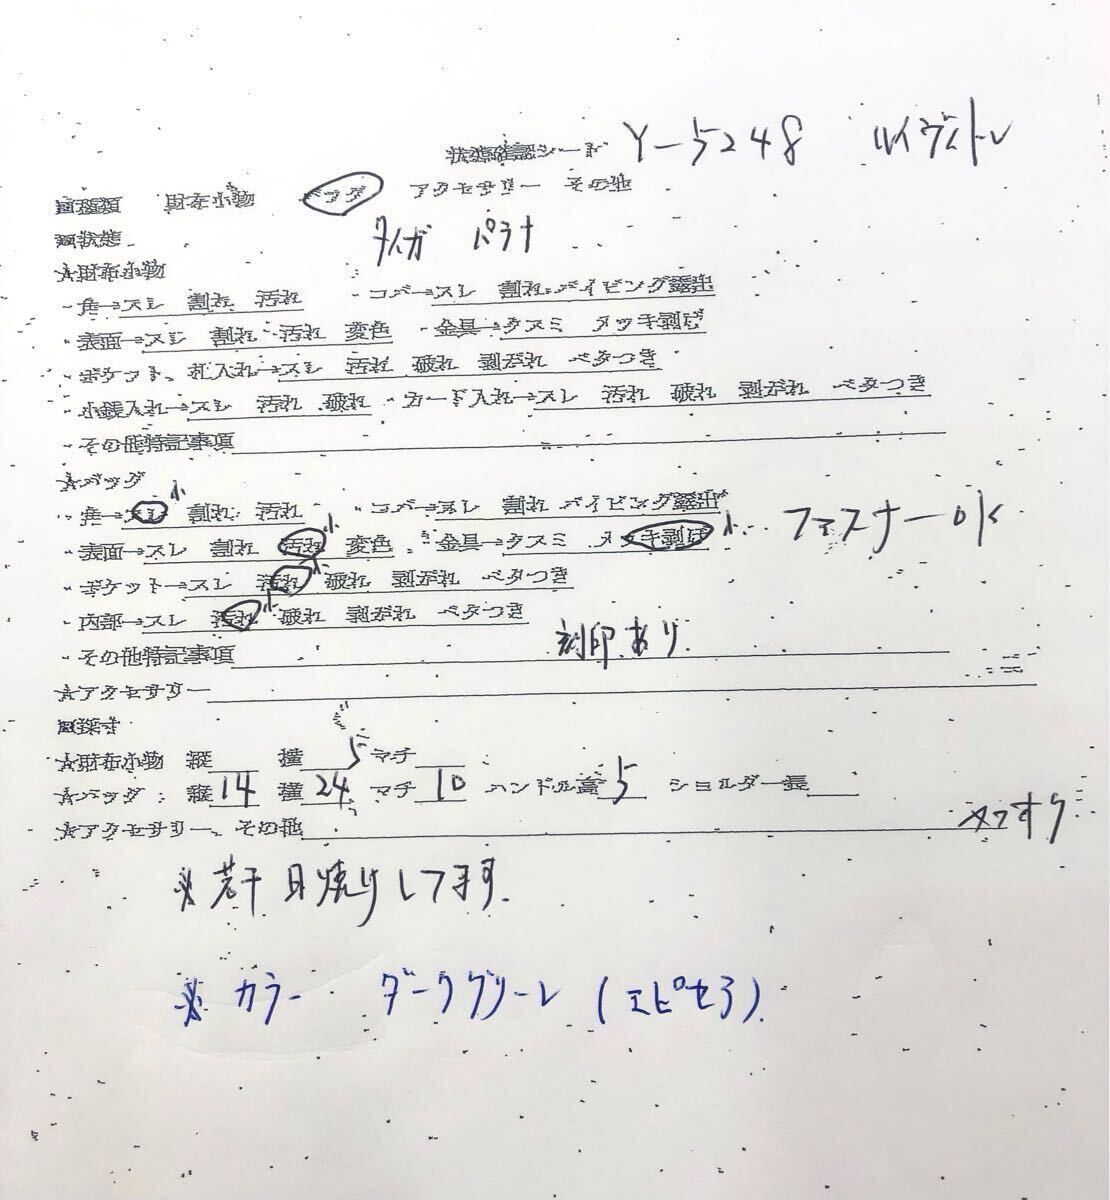 状態確認シート Y-5248 ルイヴィトン
□種類 財布小物 バッグ アクセサリー その他
□状態 タイガ パラナ
☆財布小物
・角→スレ 割れ 汚れ ・コバ→スレ 割れ パイピング露出
・表面→スレ 割れ 汚れ 変色 ・金具→クスミ メッキ剥げ
・ポケット、札入れ→スレ 汚れ 破れ 剥がれ ベタつき
・小銭入れ→スレ 汚れ 破れ ・カード入れ→スレ 汚れ 破れ 剥がれ ベタつき
・その他特記事項
☆バッグ
・角→スレ小 割れ 汚れ ・コバ→スレ 割れ パイピング露出
・表面→スレ 割れ 汚れ小 変色 ・金具→クスミ メッキ剥げ小 ファスナーOK
・ポケット→スレ 汚れ小 破れ 剥がれ ベタつき
・内部→スレ 汚れ小 破れ 剥がれ ベタつき
・その他特記事項 刻印あり
☆アクセサリー
□採寸
☆財布小物 縦 横 5 マチ
☆バッグ 縦14 横24 マチ10 ハンドル高5 ショルダー長
☆アクセサリー、その他
※若干日焼けしてます.
※カラー ダークグリーン (エピセア)